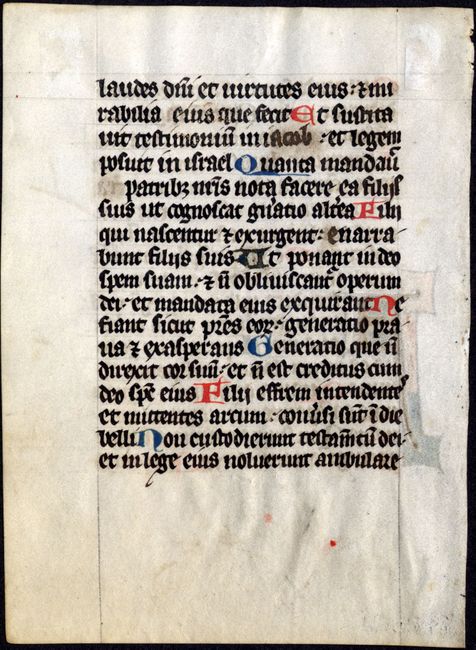 laudes dni et uirtutes eius · et mi
rabilia eius que fecit Et suscita
uit testimoniu in iacob · et legem
posuit in israel Quanta mandau
patribz nris nota facere ea filijs
suis ut cognoscat gnatio altera Filij
qui nascentur et exurgent · enarra
bunt filijs suis Ut ponant in deo
spem suam · et n obliuiscant operum
dei · et mandata eius exquirant Ne
fiant sicut pres eor · generatio pra
ua et exasperans Generatio que n
direxit cor suu · et n est creditus cum
deo spc eius Filij effrem intendentes
et mittentes arcum · conuersi sut i die
belli Non custodierunt testamtu dei ·
et in lege eius noluerunt ambulare